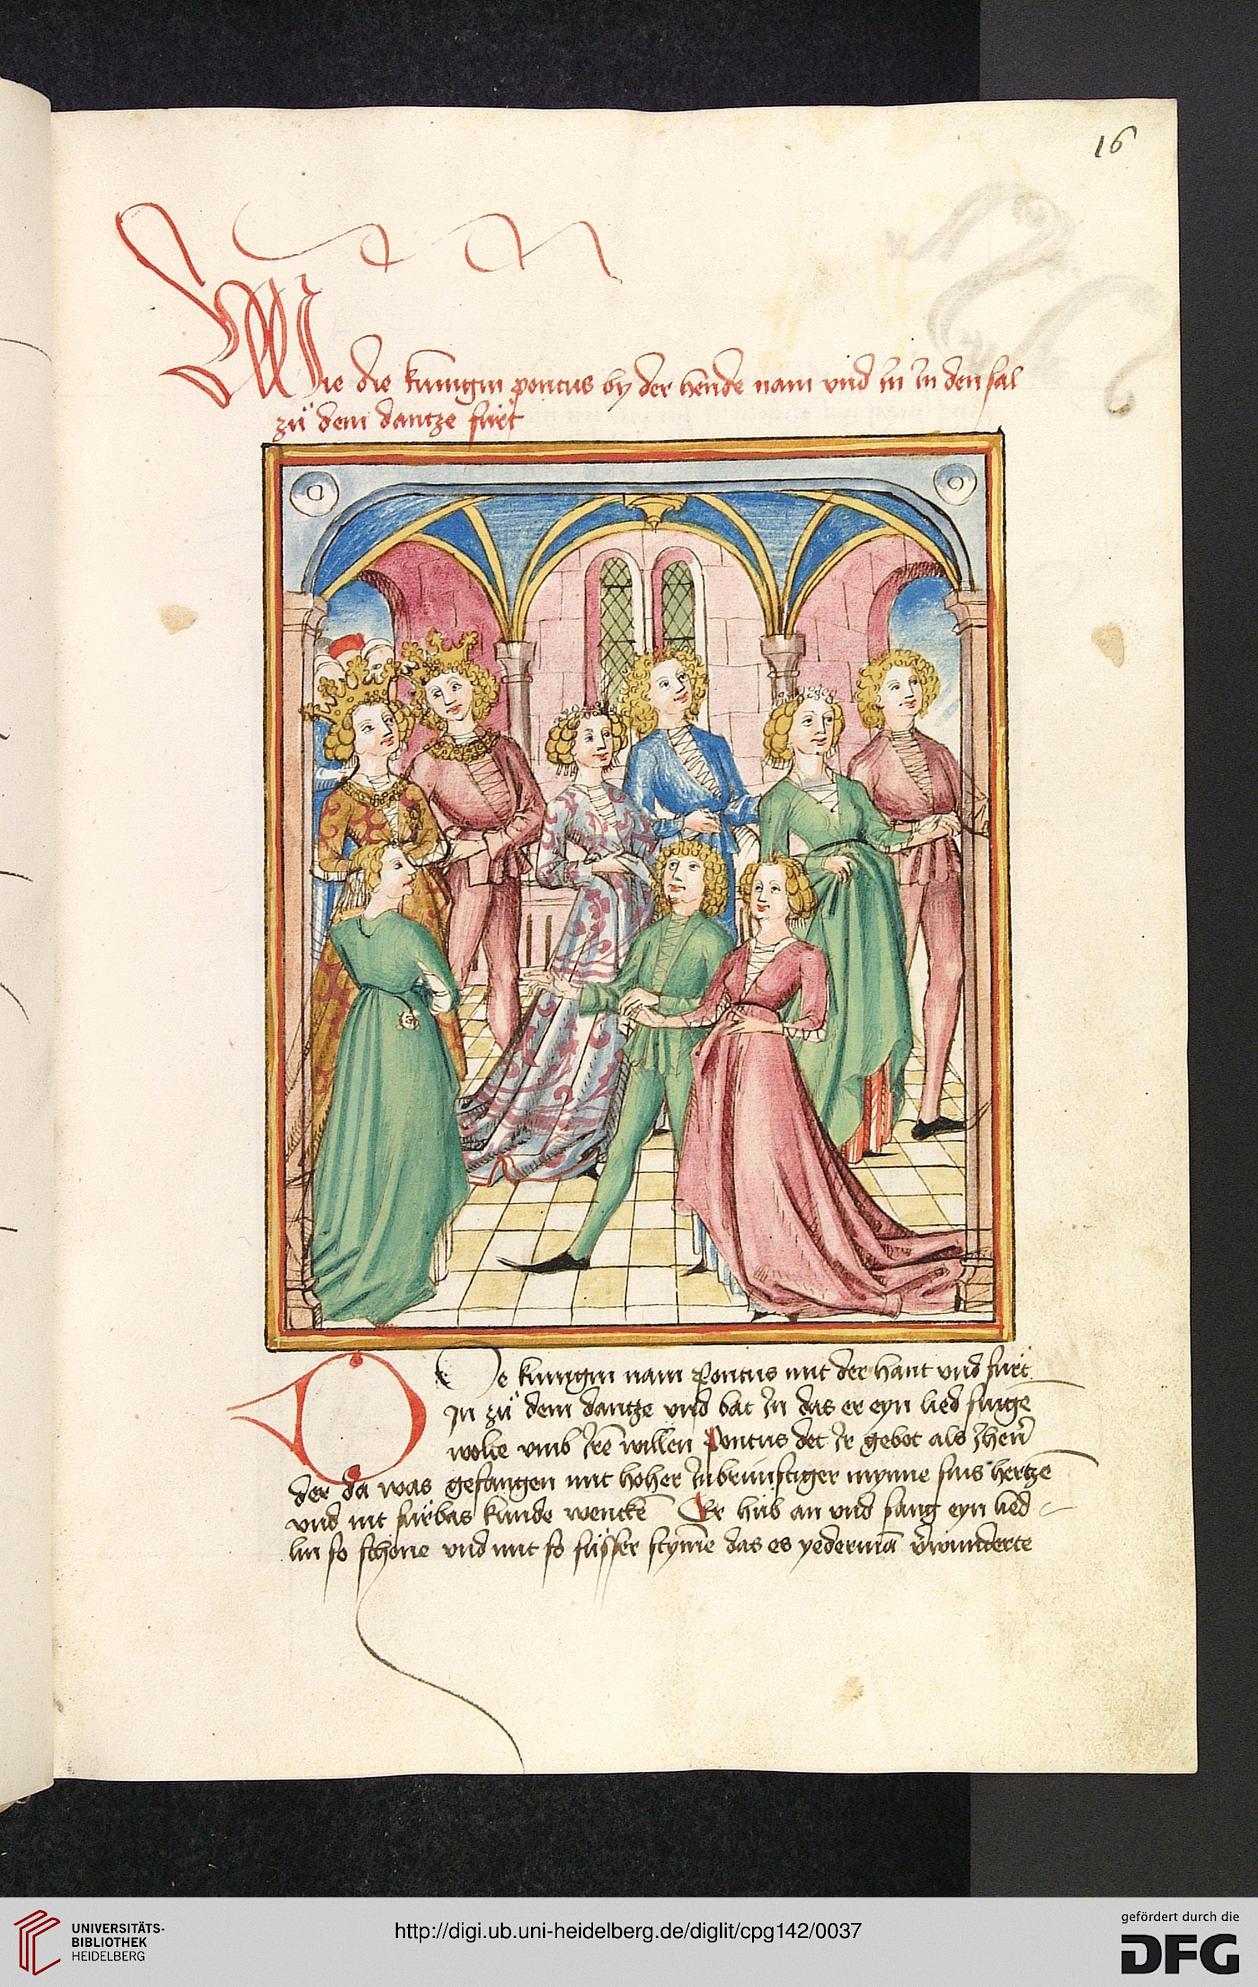 16
Wie die kunigin pontus by der hende nam vnd in in den sal
zů dem dantze fůrt
Die kunigin nam Pontus mit der hant vnd fůrt
in zů dem dantze vnd bat in das er eyn lied singe
wolte vmb irē willen Pontus det ir gebot als ihen̄
der da was gefangen mit hoher inbrünstiger mynne sins hertze
vnd nit fürbas kunde wenckē Er hůb an vnd sang eyn lied
lin so schone vnd mit so sůsser stym̄e das es yedermā v̄wunderte
UNIVERSITÄTS-
BIBLIOTHEK
HEIDELBERG
http://digi.ub.uni-heidelberg.de/diglit/cpg142/0037
gefördert durch die
DFG